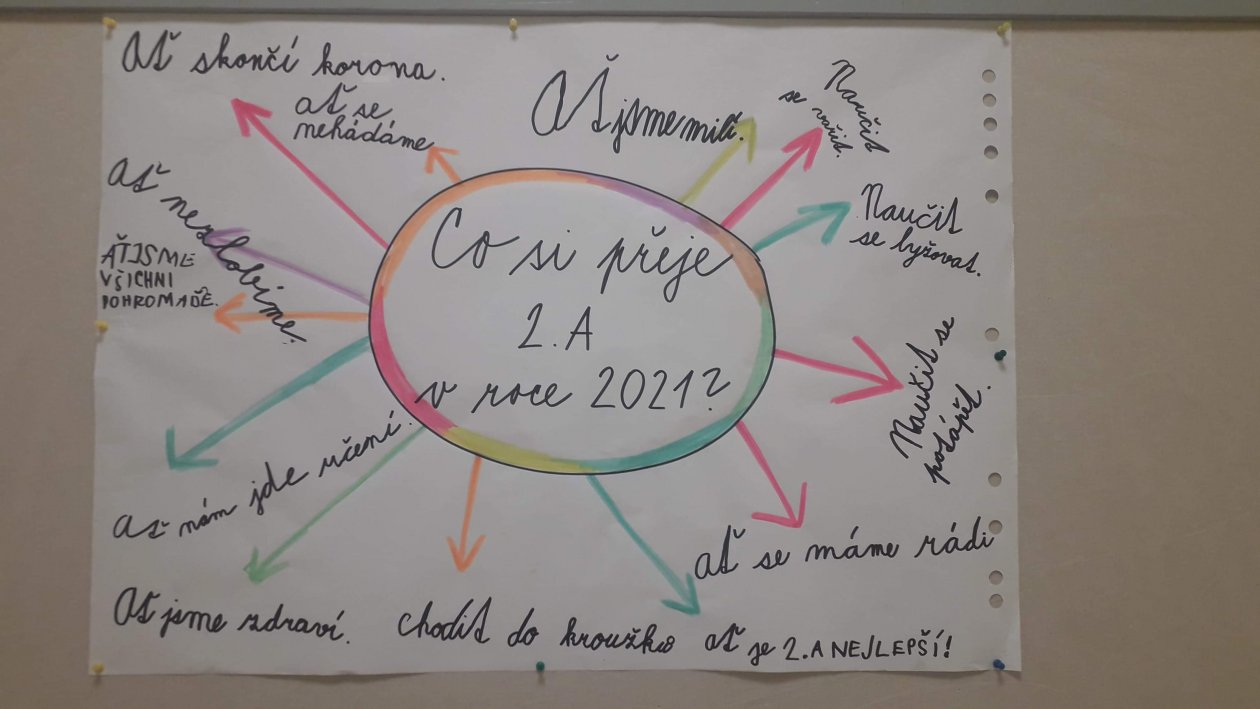 Ať skončí korona.
ať se
nehádáme
Ať jsme milí.
Naučit
se vařit.
Naučit
se lyžovat.
Ať nezlobíme.
AŤ JSME
VŠICHNI
POHROMADĚ.
Co si přeje
2.A
v roce 2021?
Naučit se
potápět.
ať nám jde učení.
ať se máme rádi
Ať jsme zdraví.
chodit do kroužků
ať je 2.A NEJLEPŠÍ!